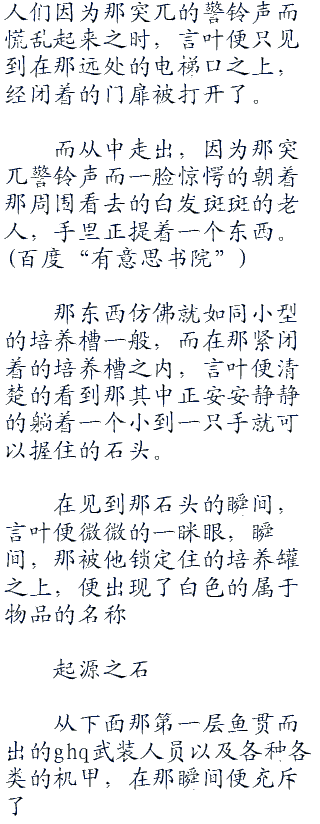 人们因为那突兀的警铃声而
慌乱起来之时，言叶便只见
到在那远处的电梯口之上，
经闭着的门扉被打开了。
而从中走出，因为那突
兀警铃声而一脸惊愕的朝着
那周围看去的白发斑斑的老
人，手里正提着一个东西。
(百度“有意思书院”)
那东西仿佛就如同小型
的培养槽一般，而在那紧闭
着的培养槽之内，言叶便清
楚的看到那其中正安安静静
的躺着一个小到一只手就可
以握住的石头。
在见到那石头的瞬间，
言叶便微微的一眯眼，瞬
间，那被他锁定住的培养罐
之上，便出现了白色的属于
物品的名称
起源之石
从下面那第一层鱼贯而
出的ghq武装人员以及各种各
类的机甲，在那瞬间便充斥
了